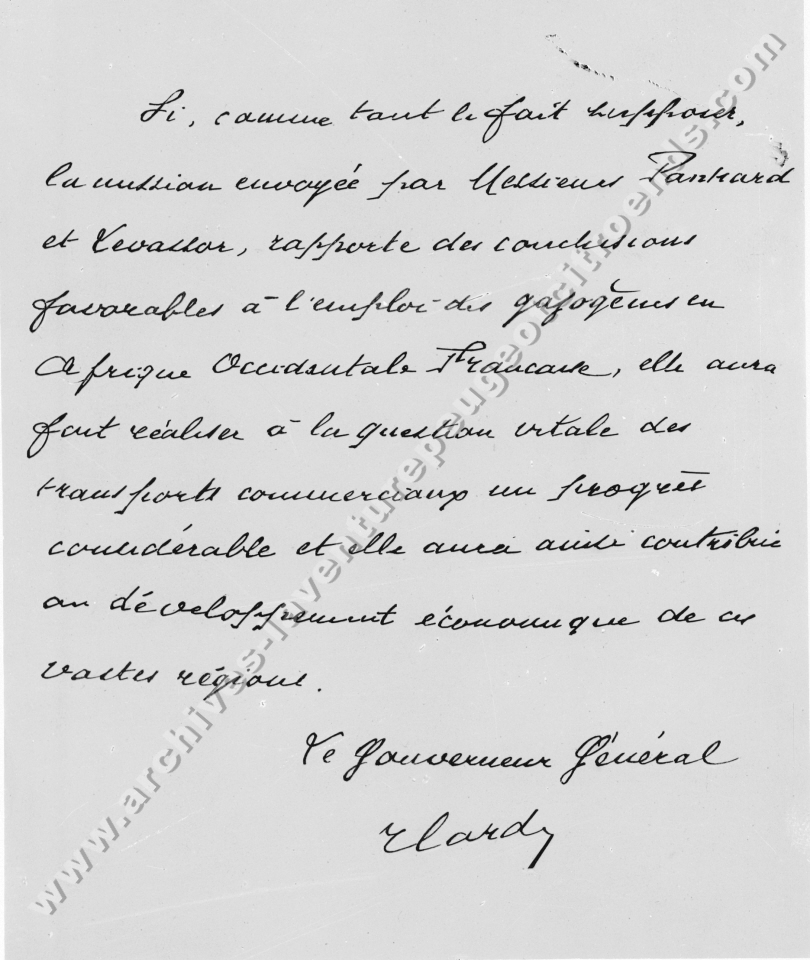 Si, comme tout le fait supposer,
la mission envoyée par Messieurs Panhard
et Levassor, rapporte des conclusions
favorables à l'emploi des gazogènes en
Afrique Occidentale Française, elle aura
fait réaliser à la question vitale des
transports commerciaux un progrès
considérable et elle aura ainsi contribué
au développement économique de ces
vastes régions.
Le Gouverneur Général
www.archives-inventurepeugeotcitroends.com